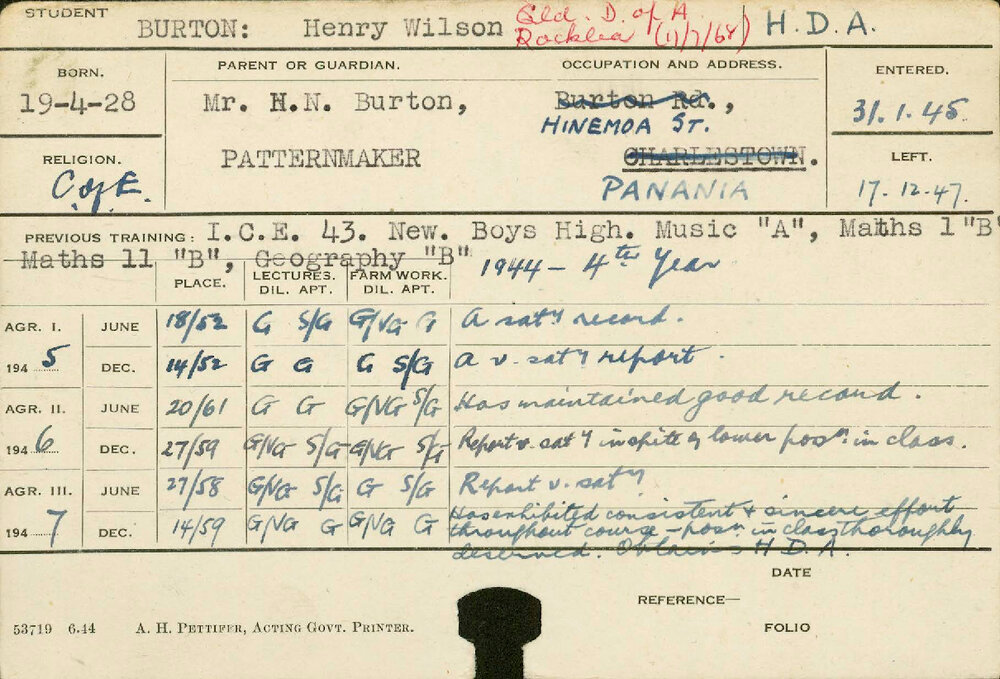 STUDENT
BURTON: Henry Wilson Qld. D. of A H. D. A.
Rocklea (11/7/68)
BORN. PARENT OR GUARDIAN. OCCUPATION AND ADDRESS. ENTERED.
19-4-28 Mr. H.N. Burton, Burton Rd., 31.1.45
HINEMOA ST.
RELIGION. PATTERNMAKER CHARLESTOWN. LEFT.
C of E. PANANIA 17.12.47.
PREVIOUS TRAINING: I.C.E. 43. New. Boys High. Music "A", Maths 1 "B"
Maths 11 "B", Geography "B" 1944 - 4th Year
PLACE. LECTURES. FARM WORK.
DIL. APT. DIL. APT.
AGR. I. JUNE 18/52 G S/G G/VG G A saty record.
194 5 DEC. 14/52 G G G S/G A v. saty report.
AGR. II. JUNE 20/61 G G G/VG S/G Has maintained good record.
194 6 DEC. 27/59 G/VG S/G G/VG S/G Report v. saty inspite of lower posn. in class.
AGR. III. JUNE 27/58 G/VG S/G G S/G Report v. saty
194 7 DEC. 14/59 G/VG G G/VG G Has exhibited consistent & sincere effort
throughout course - posn. in class thoroughly
deserved. Obtains H.D.A.
DATE
REFERENCE—
53719 6.44 A. H. PETTIFER, ACTING GOVT. PRINTER. FOLIO